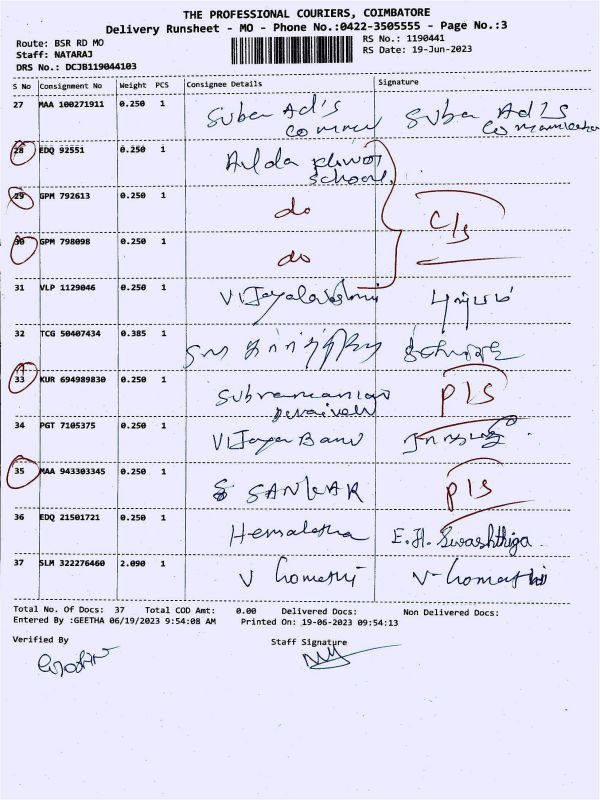 THE PROFESSIONAL COURIERS, COIMBATORE
Delivery Runsheet - MO - Phone No.:0422-3505555 - Page No.:3
Route: BSR RD MO
Staff: NATARAJ
DRS No.: DCJB119044103
RS No.: 1190441
RS Date: 19-Jun-2023
S No Consignment No Weight PCS Consignee Details Signature
27 MAA 100271911 0.250 1 Suba Ad's Suba Ad's
28 EDQ 92551 0.250 1
school.
29 GPM 792613 0.250 1 do
C/s
30 GPM 798098 0.250 1 do
31 VLP 1129046 0.250 1 Vijayalakshmi
32 TCG 50407434 0.385 1
33 KUR 694989830 0.250 1 Subramanian P/S
34 PGT 7105375 0.250 1 Vijaya Banu
35 MAA 943303345 0.250 1 S SANKAR P/S
36 EDQ 21501721 0.250 1 Hemalatha E.H. Swashthiga.
37 SLM 322276460 2.090 1 V homathi V-homathi
Total No. Of Docs: 37 Total COD Amt: 0.00 Delivered Docs: Non Delivered Docs:
Entered By :GEETHA 06/19/2023 9:54:08 AM Printed On: 19-06-2023 09:54:13
Verified By Staff Signature